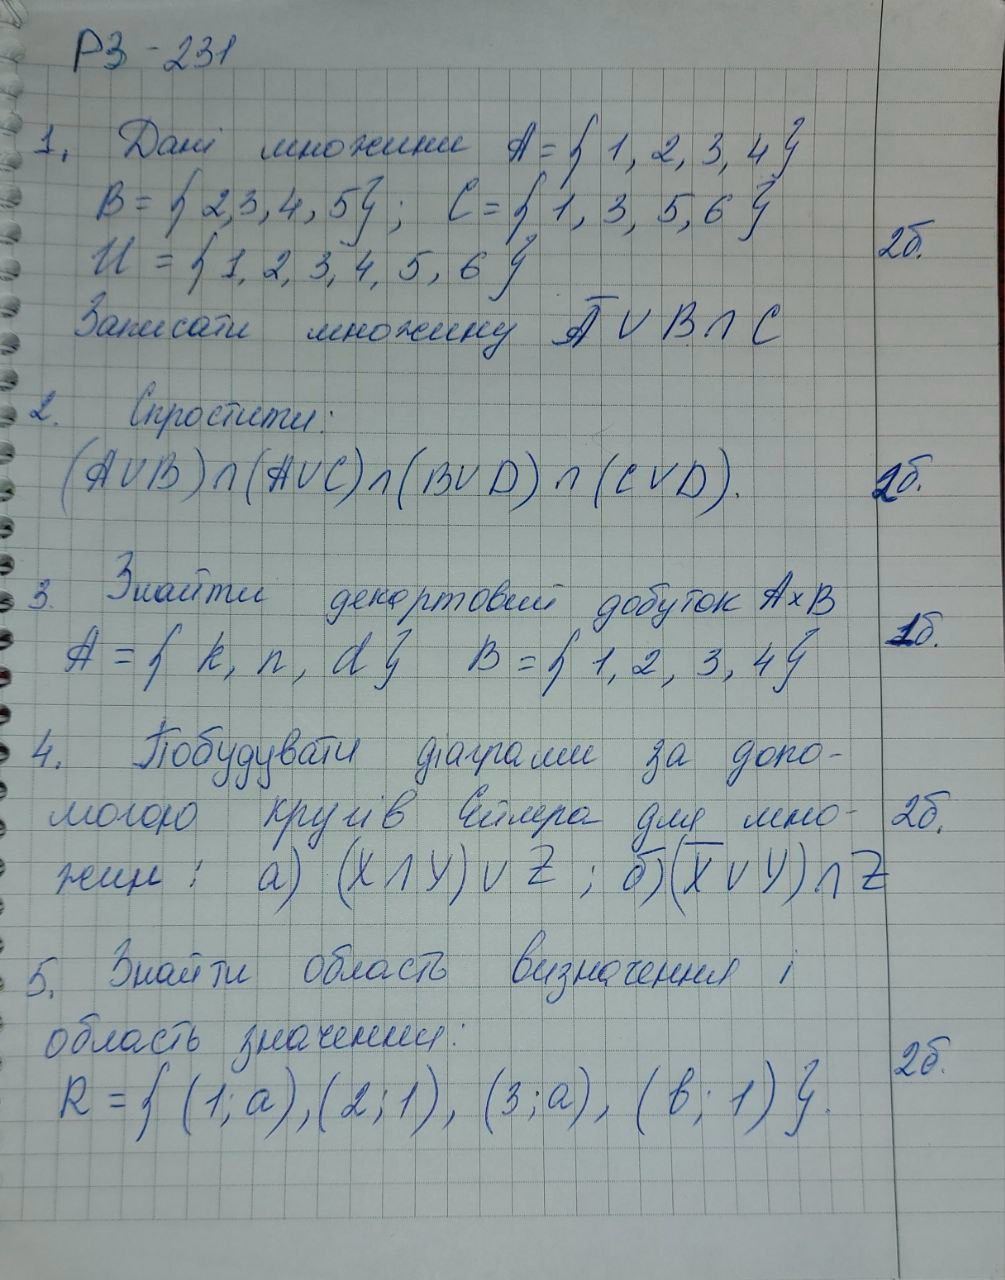 РЗ - 231
1. Дані множини A = { 1, 2, 3, 4 }
B = { 2, 3, 4, 5 }; C = { 1, 3, 5, 6 }
U = { 1, 2, 3, 4, 5, 6 } 2б.
Записати множину A̅ ∪ B ∩ C
2. Спростити:
(A∪B) ∩ (A∪C) ∩ (B∪D) ∩ (C∪D). 2б.
3. Знайти декартовий добуток A×B
1б.
A = { k, n, d } B = { 1, 2, 3, 4 }
4. Побудувати діаграми за допо-
могою кругів Ейлера для мно- 2б.
жин: а) (X ∩ Y) ∪ Z ; б) (X̅ ∪ Y) ∩ Z
5. Знайти область визначення і
область значення:
2б.
R = { (1; a), (2; 1), (3; a), (b; 1) }.